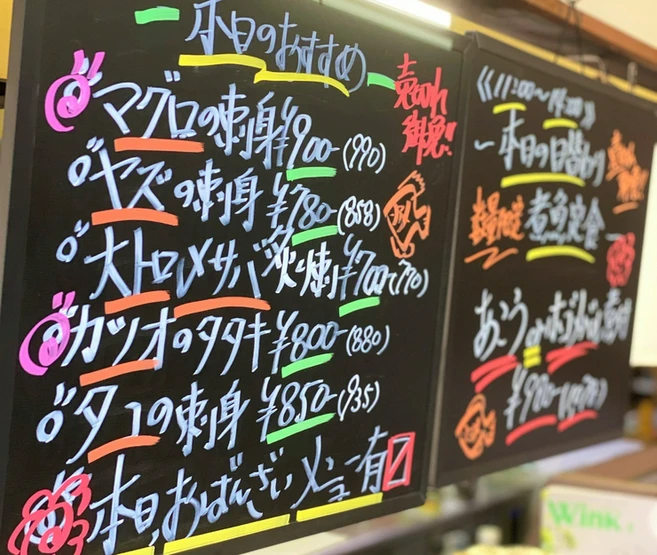 本日のおすすめ
売切れ御免!!
マグロの刺身 ¥900-(990)
ヤズの刺身 ¥780-(858)
大トロ〆サバ炙り刺 ¥700(770)
カツオのタタキ ¥800-(880)
タコの刺身 ¥850-(935)
本日、おばんざいメニュー有
《11:00〜14:00》
本日の日替わり
売切れ御免
数量限定 煮魚定食
あこう or
¥980-
Wink.